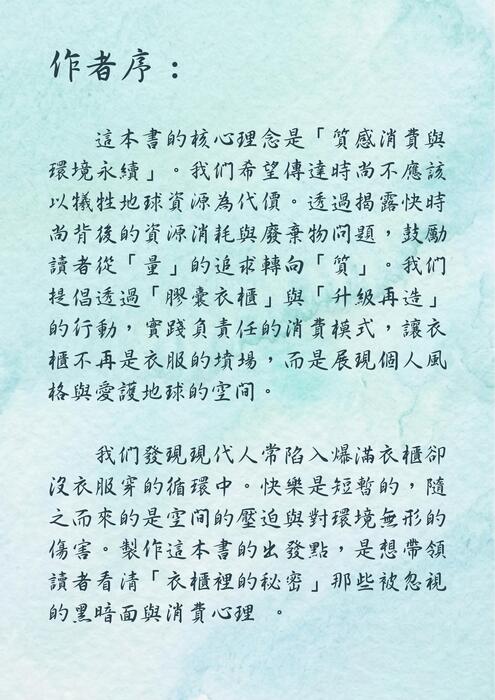 作者序：
這本書的核心理念是「質感消費與
環境永續」。我們希望傳達時尚不應該
以犧牲地球資源為代價。透過揭露快時
尚背後的資源消耗與廢棄物問題，鼓勵
讀者從「量」的追求轉向「質」。我們
提倡透過「膠囊衣櫃」與「升級再造」
的行動，實踐負責任的消費模式，讓衣
櫃不再是衣服的墳場，而是展現個人風
格與愛護地球的空間。
我們發現現代人常陷入爆滿衣櫃卻
沒衣服穿的循環中。快樂是短暫的，隨
之而來的是空間的壓迫與對環境無形的
傷害。製作這本書的出發點，是想帶領
讀者看清「衣櫃裡的秘密」那些被忽視
的黑暗面與消費心理 。